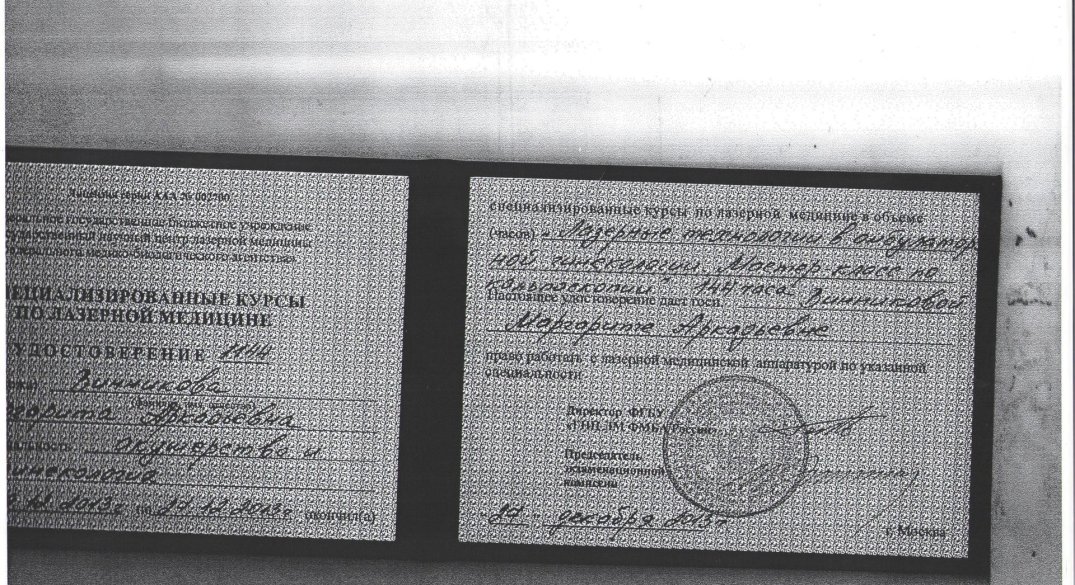 Лицензия серии ААА № 002700
Федеральное государственное бюджетное учреждение
Государственный научный центр лазерной медицины
Федерального медико-биологического агентства»
СПЕЦИАЛИЗИРОВАННЫЕ КУРСЫ
ПО ЛАЗЕРНОЙ МЕДИЦИНЕ
УДОСТОВЕРЕНИЕ 1144
Винникова
аргарита Аркадьевна
акушерство и
гинекология
12.2013г по 27.12.2013г окончил(а)
специализированные курсы по лазерной медицине в объеме
(часов) «Лазерные технологии в амбулатор
ной гинекологии. Мастер-класс по
кольпоскопии" 144 часа
Настоящее удостоверение дает госп. Винниковой
Маргарите Аркадьевне
право работать с лазерной медицинской аппаратурой по указанной
специальности
Директор ФГБУ
«ГНЦ ЛМ ФМБА России»
Председатель
экзаменационной
комиссии
«27» декабря 2013г
г. Москва